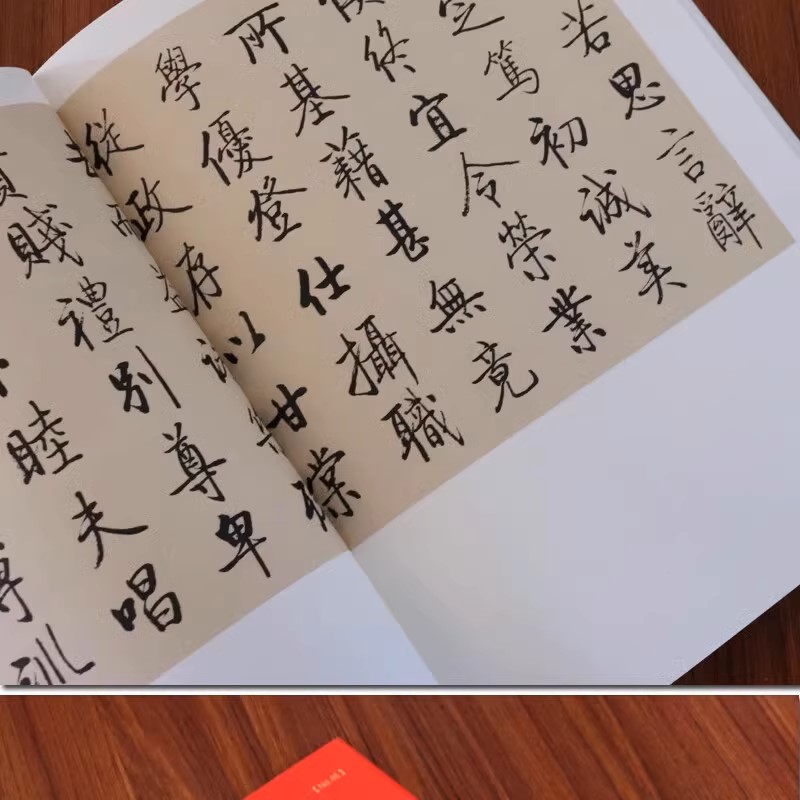 若思言辭
定篤初誠美
終宜令榮業
所基藉甚無竟
學優登仕攝職
從政存以甘棠
益
賤禮別尊卑
睦夫唱
訓